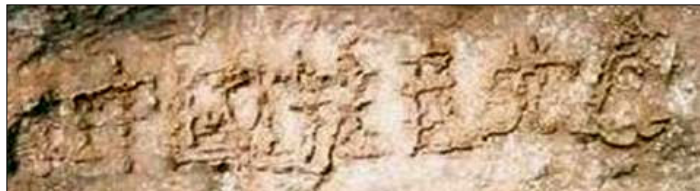 中國共产党亡